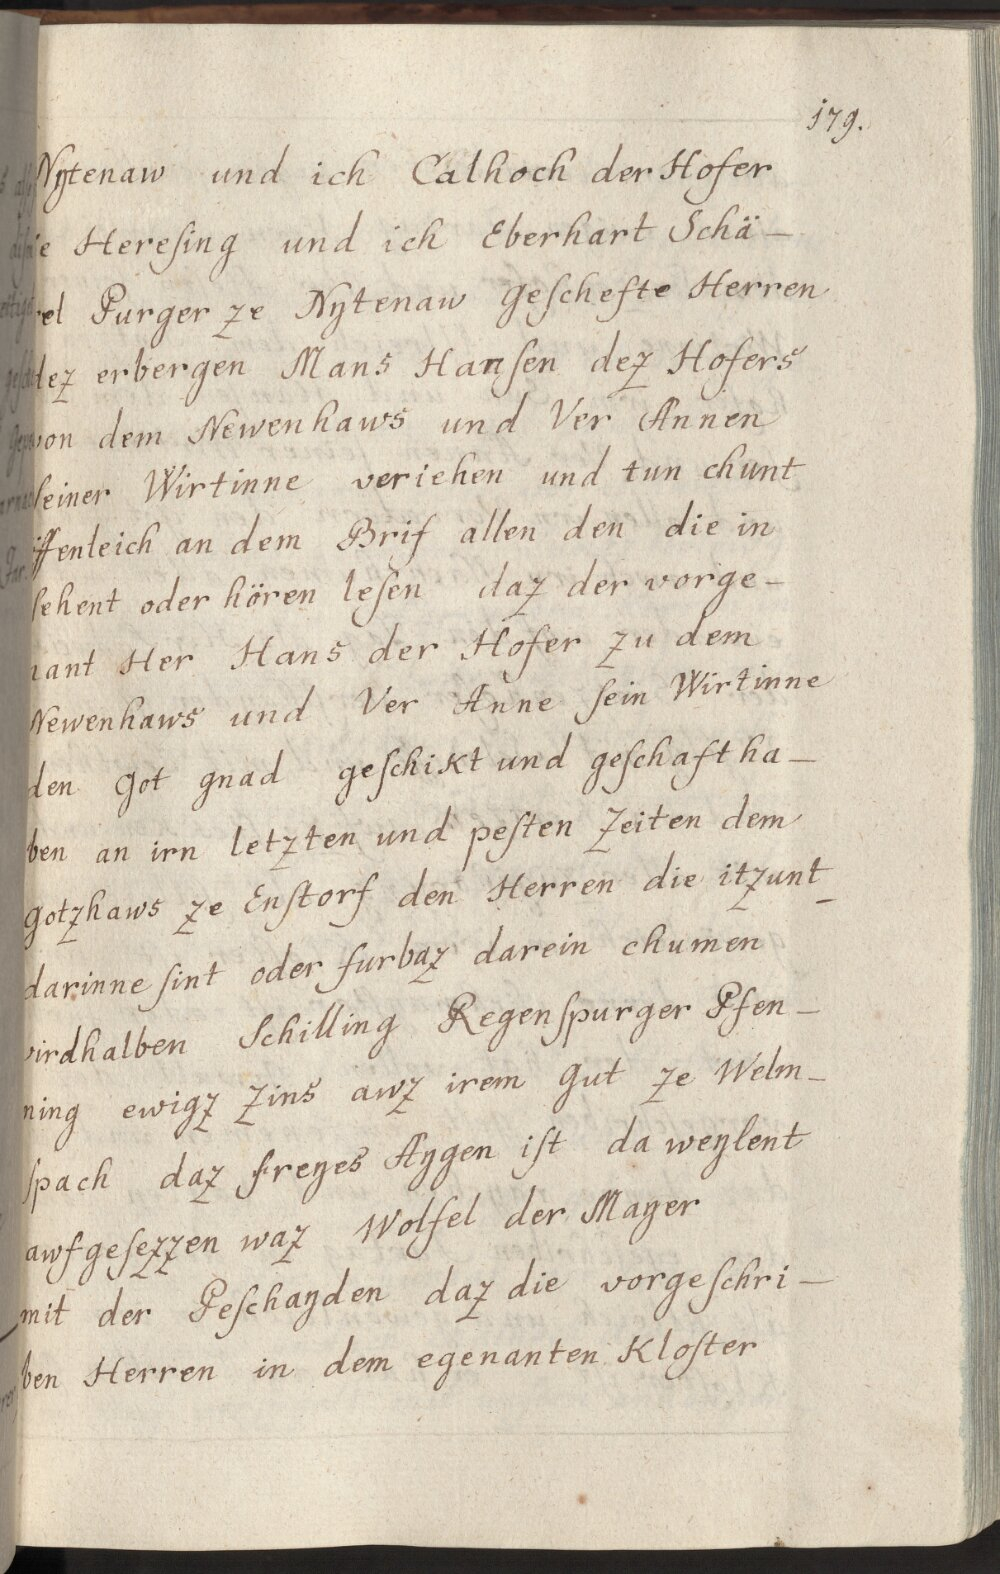 179.
Nytenaw und ich Calhoch der Hofer
ze Heresing und ich Eberhart Schä-
rel Purger ze Nytenaw geschefte Herren
dez erbergen Mans Hansen dez Hofers
von dem Newenhaws und Ver Annen
seiner Wirtinne veriehen und tun chunt
öffenleich an dem Brif allen den die in
sehent oder hören lesen daz der vorge-
nant Her Hans der Hofer zu dem
Newenhaws und Ver Anne sein Wirtinne
den Got gnad geschikt und geschaft ha-
ben an irn letzten und pesten Zeiten dem
Gotzhaws ze Enstorf den Herren die itzunt
darinne sint oder furbaz darein chumen
virdhalben Schilling Regenspurger Pfen-
ning ewigz Zins awz irem Gut ze Welm-
spach daz freyes Aygen ist da weylent
awfgesezzen waz Wolfel der Mayer
mit der Peschayden daz die vorgeschri-
ben Herren in dem egenanten Kloster